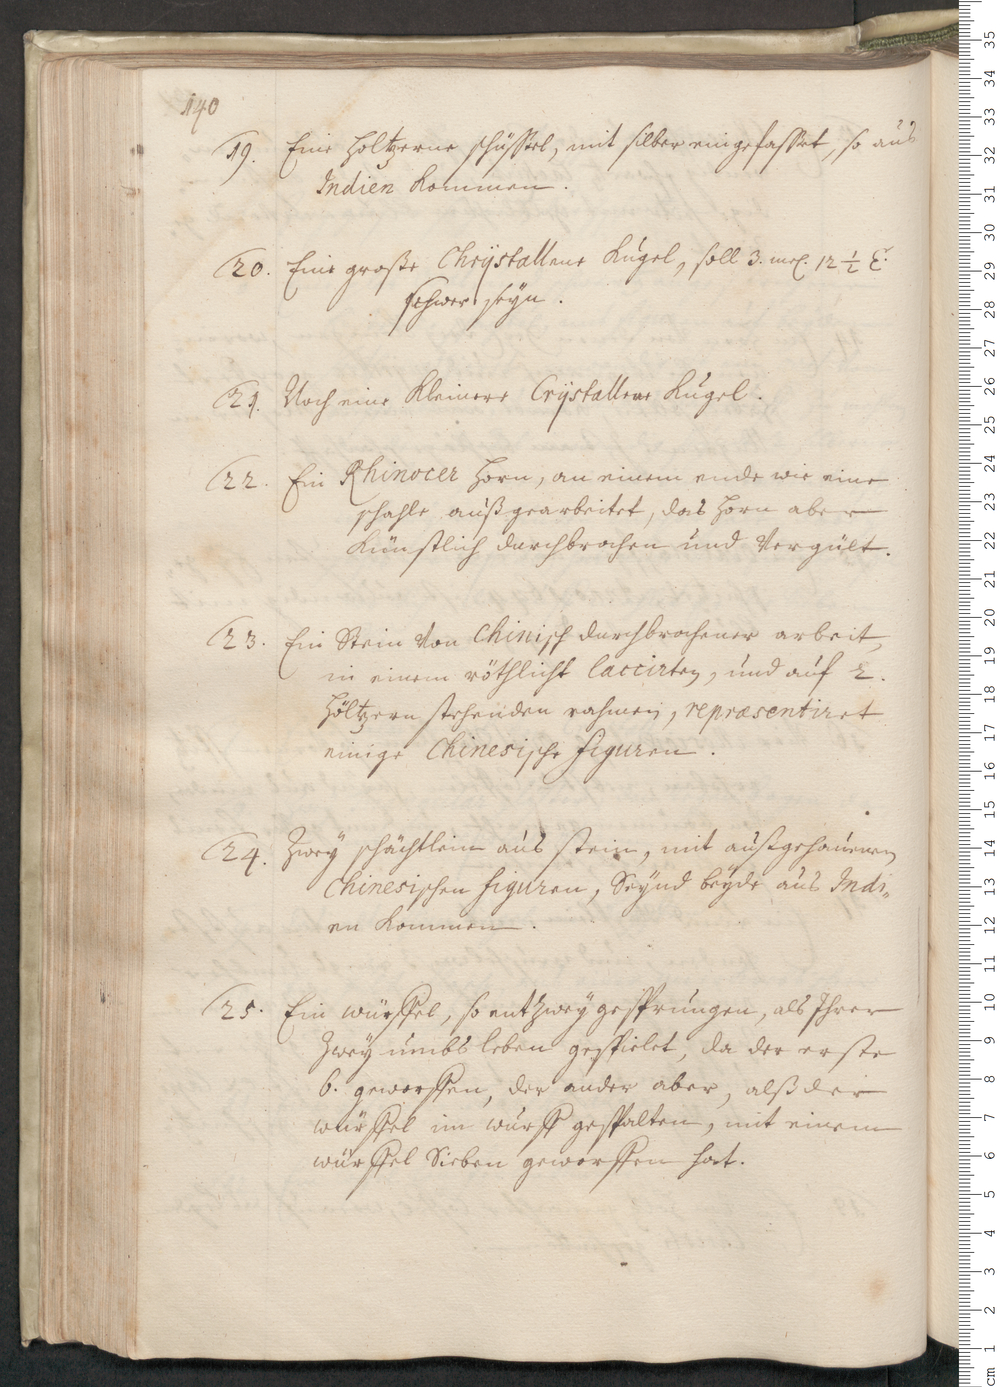 140
19. Eine höltzerne schüssel, mit silber eingefasset, so aus
Indien kommen.
20. Eine große Chrÿstallene Kugel, soll 3. 12 1/2
schwer seÿn.
21. Noch eine kleinere Crÿstallene Kugel.
22. Ein Rhinocer Horn, an einem ende wie eine
schahle außgearbeitet, das Horn aber
künstlich durchbrochen und Vergült.
23. Ein Stein von Chinisch durchbrochener arbeit,
in einem röthlicht laccirten, und auf 2.
Höltzern stehenden rahmen, repræsentiret
einige Chinesische figuren.
24. Zweÿ schächtlein aus stein, mit außgehauenen
Chinesischen figuren, Seÿnd beÿde aus Indi-
en kommen.
25. Ein würffel, so entzweÿ gesprungen, als Ihrer
Zweÿ umbs leben gespielet, da der erste
6. geworffen, der ander aber, alß der
würffel im wurff gespalten, mit einem
würffel Sieben geworffen hat.
cm 1 2 3 4 5 6 7 8 9 10 11 12 13 14 15 16 17 18 19 20 21 22 23 24 25 26 27 28 29 30 31 32 33 34 35